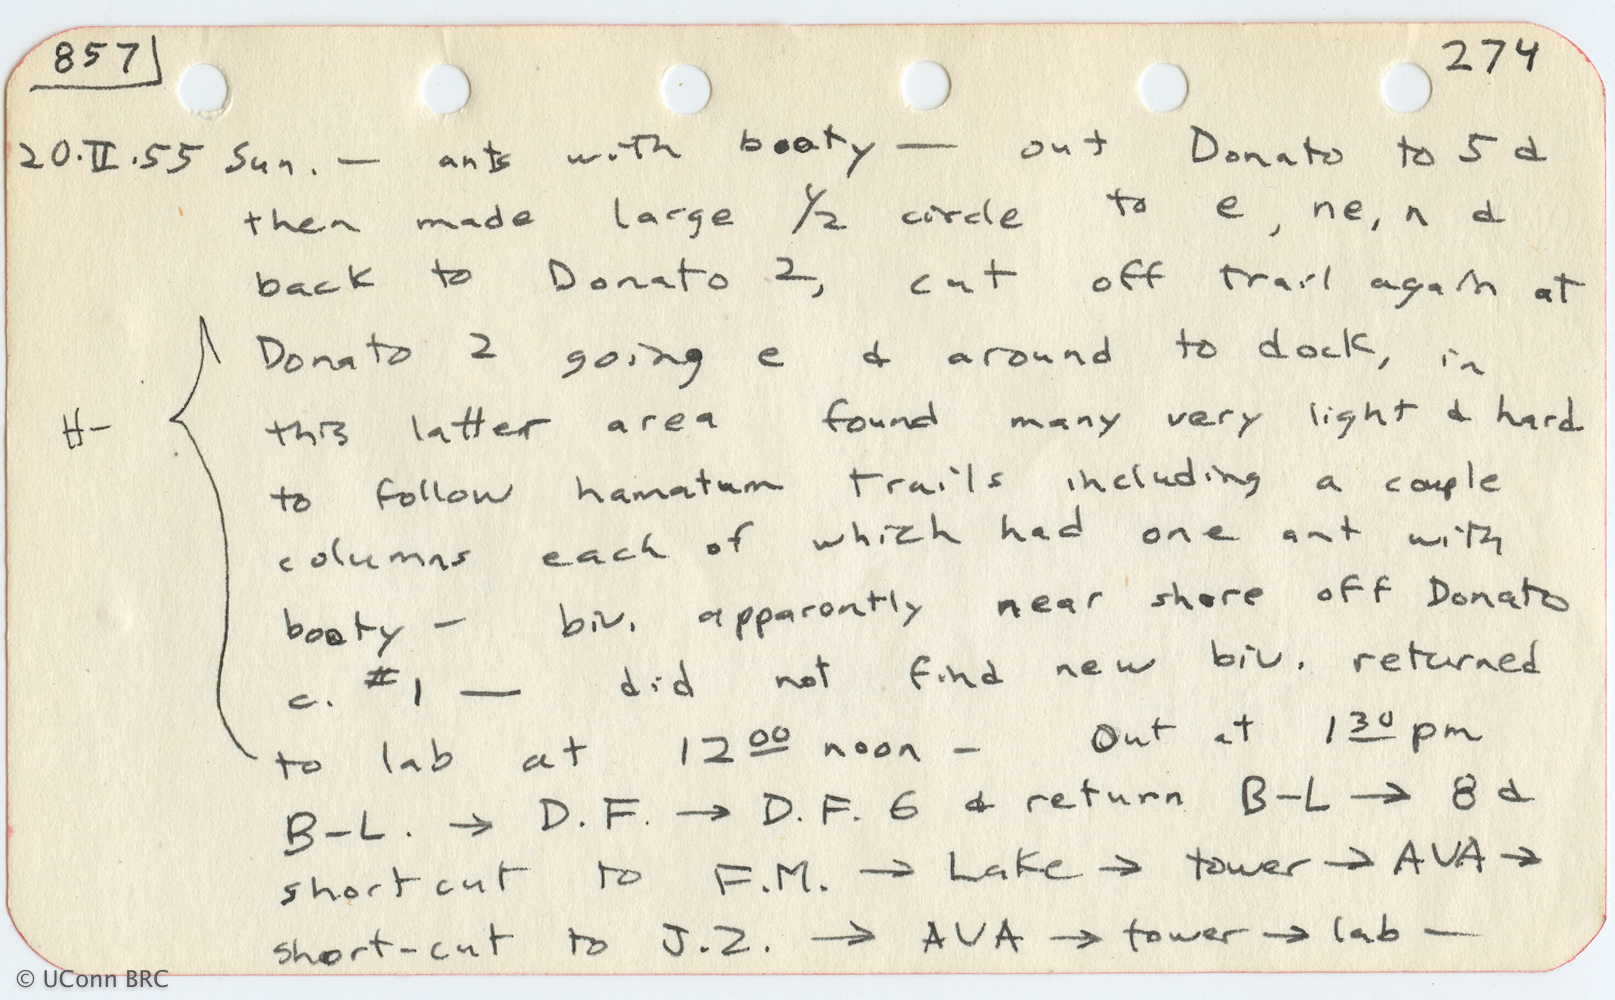 857 274
20.II.55 Sun. — ants with booty — out Donato to 5 &
then made large 1/2 circle to e, ne, n &
back to Donato 2, cut off trail again at
Donato 2 going e & around to dock, in
H- this latter area found many very light & hard
to follow hamatum trails including a couple
columns each of which had one ant with
booty — biv. apparently near shore off Donato
c. #1 — did not find new biv. returned
to lab at 12 00 noon - Out at 1 30 pm
B-L. → D.F. → D.F. 6 & return B-L → 8 &
shortcut to F.M. → Lake → tower → AVA →
short-cut to J.Z. → AVA → tower → lab —
© UConn BRC